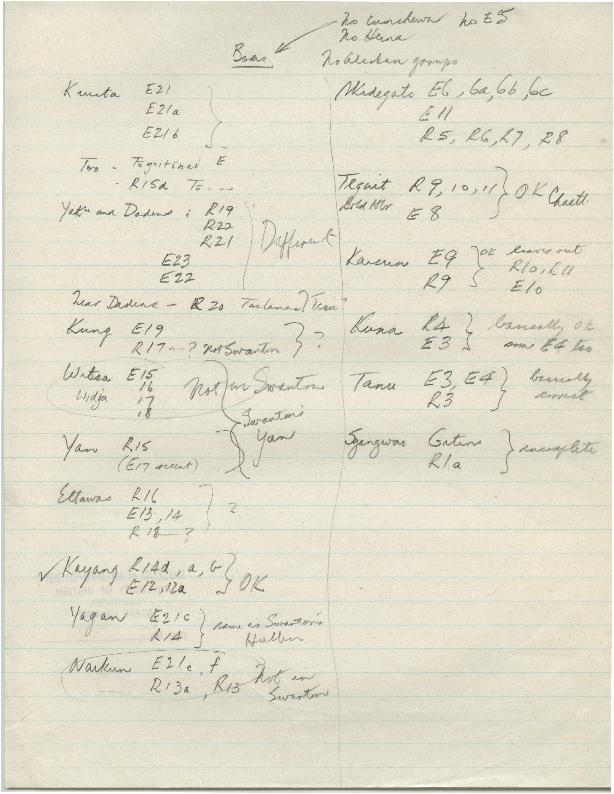 No Cumshewa no E5
No Haina
Boas
No Alaskan groups
Kiusta E21
E21a
E21b
Too - E
- R15a To....
Yaku and Dadens : R19
R22
R21
E23
E22
Different
near Dadens - R20
Kung E19
R17 - ? not Swanton
?
Witsa E15
Widja 16
17
18
Not in Swanton
Yan R15
(E17 recent)
Swanton's
Yan
Ettawas R16
E13, 14
R18 - ?
?
✓ Kayang R14d, a, b
E12, 12a
OK
Yagan E21c
R14
same as Swanton's
Hiellen
Naikun E21e, f
R13a, R13
Not in
Swanton
Skidegate E6, 6a, 6b, 6c
E11
R5, R6, R7, R8
R9, 10, 11
Gold Hbr E8
OK Chaatl
Kaisun E9
R9
OK leaves out
R10, E11
E10
Kuna R4
E3
basically OK
some E4 too
Tanu E3, E4
R3
basically
correct
R1a
incomplete